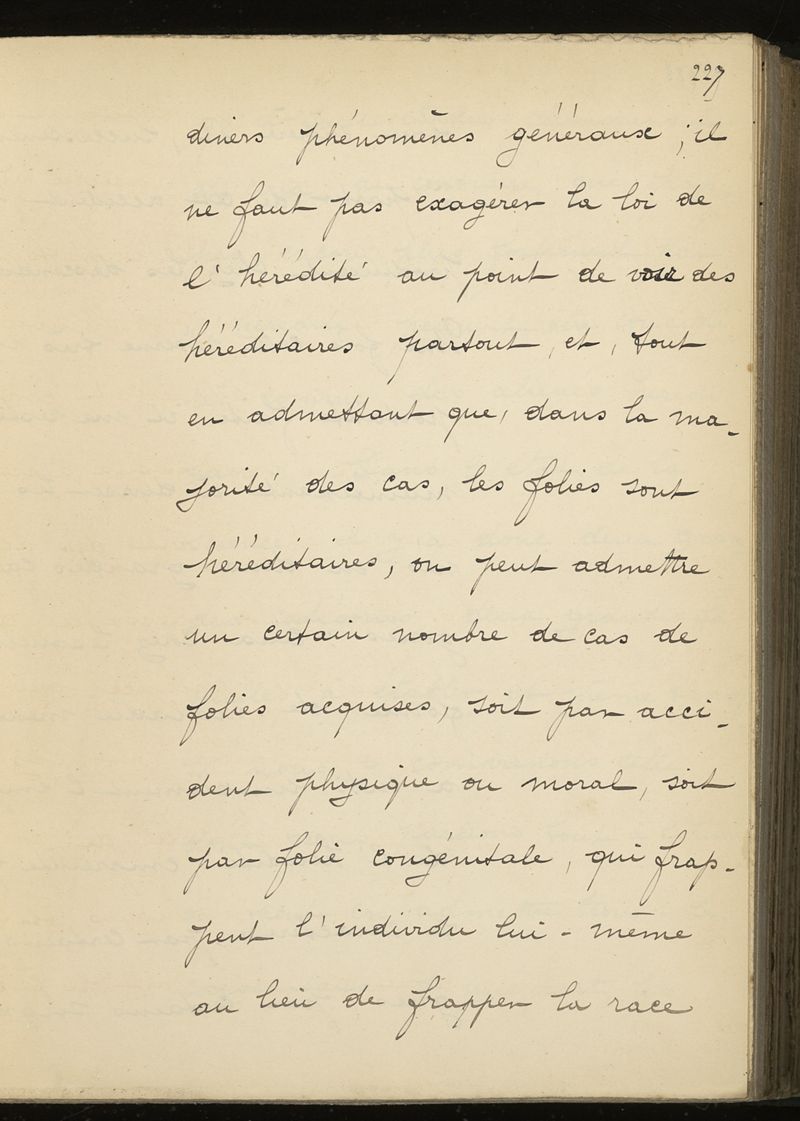 227
divers phénomènes généraux ; il
ne faut pas exagérer la loi de
l'hérédité au point de voir des
héréditaires partout, et, tout
en admettant que, dans la ma-
jorité des cas, les folies sont
héréditaires, on peut admettre
un certain nombre de cas de
folies acquises, soit par acci-
dent physique ou moral, soit
par folie congénitale, qui frap-
pent l'individu lui-même
au lieu de frapper la race